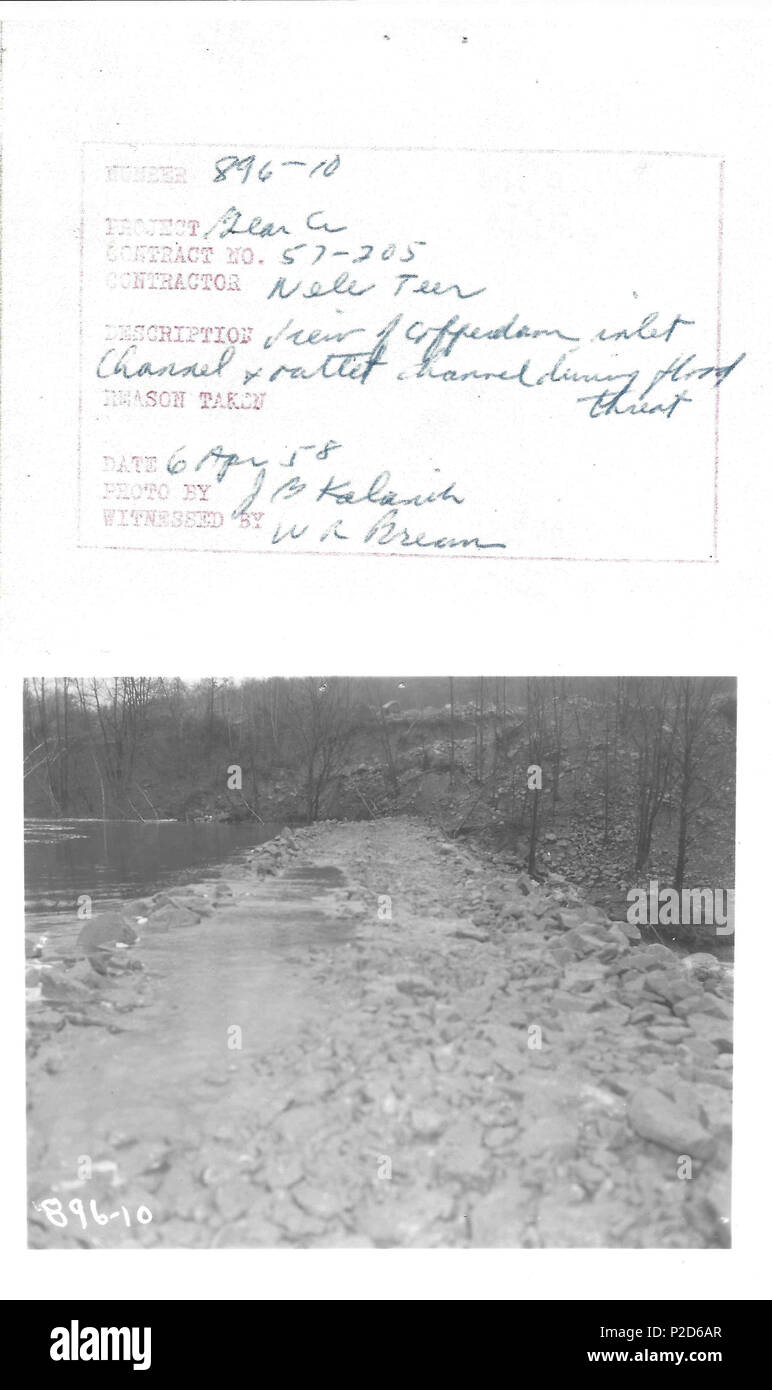 NUMBER 896-10
PROJECT Bear Cr
CONTRACT NO. 57-205
CONTRACTOR Nele Teer
DESCRIPTION View of Cofferdam inlet
Channel & outlet channel during flood
threat
REASON TAKEN
DATE 6 Apr 58
PHOTO BY J B
WITNESSED BY W R
alamy
896-10
alamy
Image ID: P2D6AR
www.alamy.com